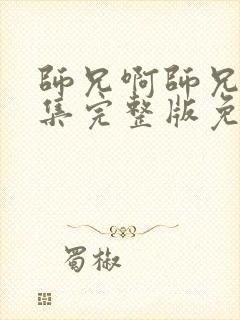 師兄啊師兄
集完整版免
蜀椒